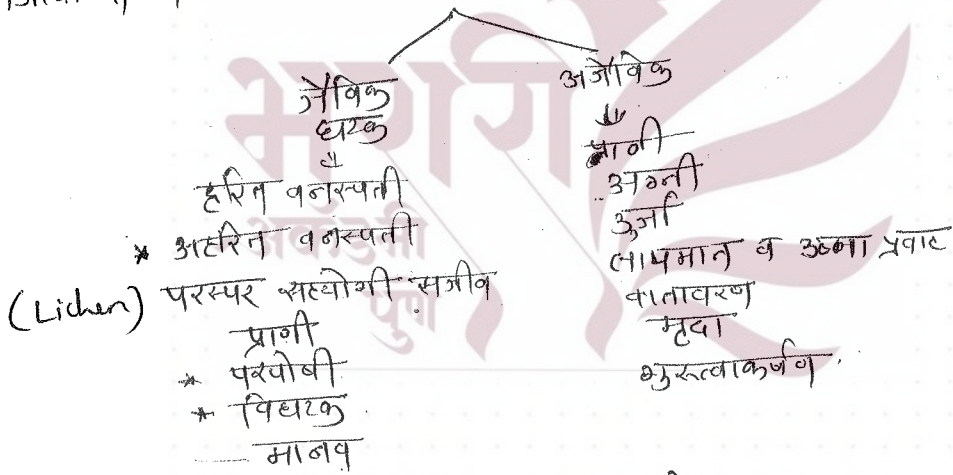 जैविक
घटक
हरित वनस्पती
* अहरित वनस्पती
(Lichen) परस्पर सहयोगी सजीव
प्राणी
* परपोषी
* विघटक
मानव
अजैविक
पानी
अग्नी
ऊर्जा
तापमान व उष्मा प्रवाह
वातावरण
मृदा
गुरुत्वाकर्षण
भगीरथ
अकॅडमी
पुणे